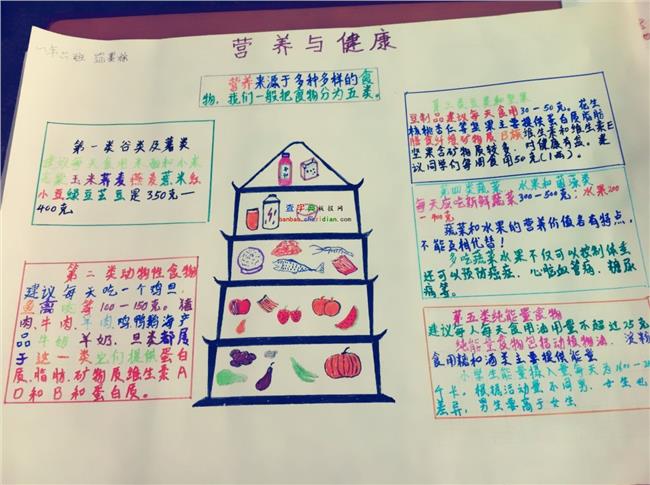 营养与健康
六班
营养来源于多种多样的食
物，我们一般把食物分为五类。
第一类谷类及薯类
建议每天食用米面和小米
玉米荞麦燕麦薏米红
小豆绿豆芸豆是350克—
400克
第二类动物性食物
建议每天吃一个鸡旦，
鱼禽 等100—150克。猪
肉、牛肉、羊肉、鸡鸭鹅海产
品牛奶羊奶，旦类都属
于这一类它们提供蛋白
质、脂肪、矿物质维生素A
D和B和蛋白质。
查字典模板网
banbao.chazidian.com
第三类豆果和坚果
豆制品建议每天食用30—50克。花生
核桃杏仁等坚果主要提供蛋白质脂肪
膳食纤维矿物质B族维生素和维生素E
坚果含矿物质较多，对健康有益。建
议同学们每周食用50克(1两)。
第四类蔬菜、水果和菌藻类
每天应吃新鲜蔬菜300—500克；水果200
—400克
蔬菜和水果的营养价值各有特点，
不能互相代替！
多吃蔬菜水果不仅可以控制体重
还可以预防癌症、心脑血管病、糖尿
病等。
第五类纯能量食物
建议每人每天食用油用量不超过25克
纯能量食物包括动植物油、淀粉
食用糖和酒类主要提供能量
小学生能量摄入量每天为1600—
千卡。根据活动量不同男、女生也
差异，男生要高于女生